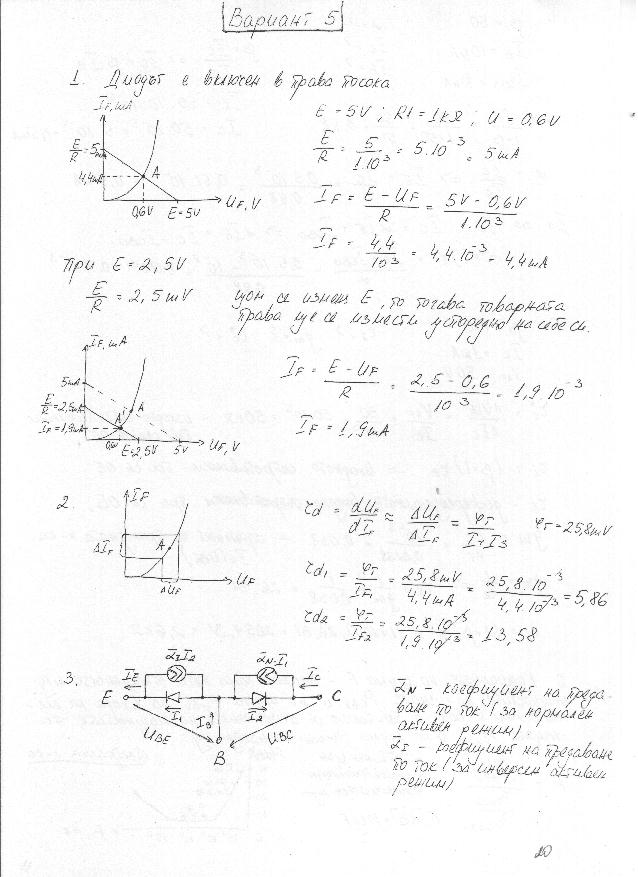 Вариант 5
1. Диодът е включен в права посока
I_F, mA
E/R = 5mA
4,4mA
A
0,6V
E=5V
U_F, V
E = 5V ; R1 = 1kΩ ; U = 0.6V
E/R = 5/1.10³ = 5.10⁻³ = 5mA
I_F = (E – U_F)/R = (5V – 0,6V)/1.10³
I_F = 4,4/10³ = 4,4.10⁻³ = 4,4mA
При E = 2,5V
E/R = 2,5mV
щом се измени E, то тогава товарната
права ще се измести успоредно на себе си.
I_F, mA
5mA
E/R = 2,5mA
I_F = 1,9mA
A'
A
0,6V
E=2,5V
5V
U_F, V
I_F = (E – U_F)/R = (2,5 – 0,6)/10³ = 1,9.10⁻³
I_F = 1,9mA
2.
I_F
ΔI_F
A
ΔU_F
U_F
rd = dU_F/dI_F ≈ ΔU_F/ΔI_F = φT/(I+I_S) φT = 25,8mV
rd₁ = φT/I_F1 = 25,8mV/4,4mA = 25,8.10⁻³/4,4.10⁻³ = 5,86
rd₂ = φT/I_F2 = 25,8.10⁻³/1,9.10⁻³ = 13,58
3.
I_E
E
α_I I₂
I₁
I_B
U_BE
B
U_BC
α_N.I₁
I₂
I_C
C
α_N – коефициент на преда-
ване по ток (за нормален
активен режим)
α_I – коефициент на предаване
по ток (за инверсен активен
режим)
20